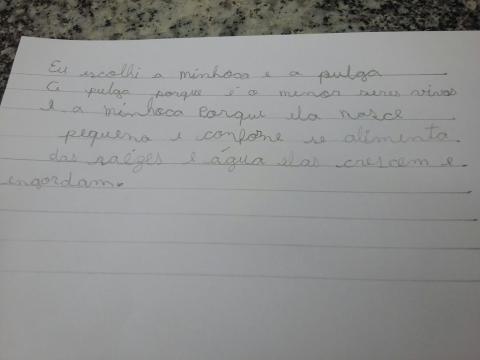 Eu escolhi a minhoca e a pulga
A pulga porque é o menor seres vivos
E a minhoca Porque ela nasce
pequena e conforme se alimenta
das raézes e água elas crescem e
engordam.